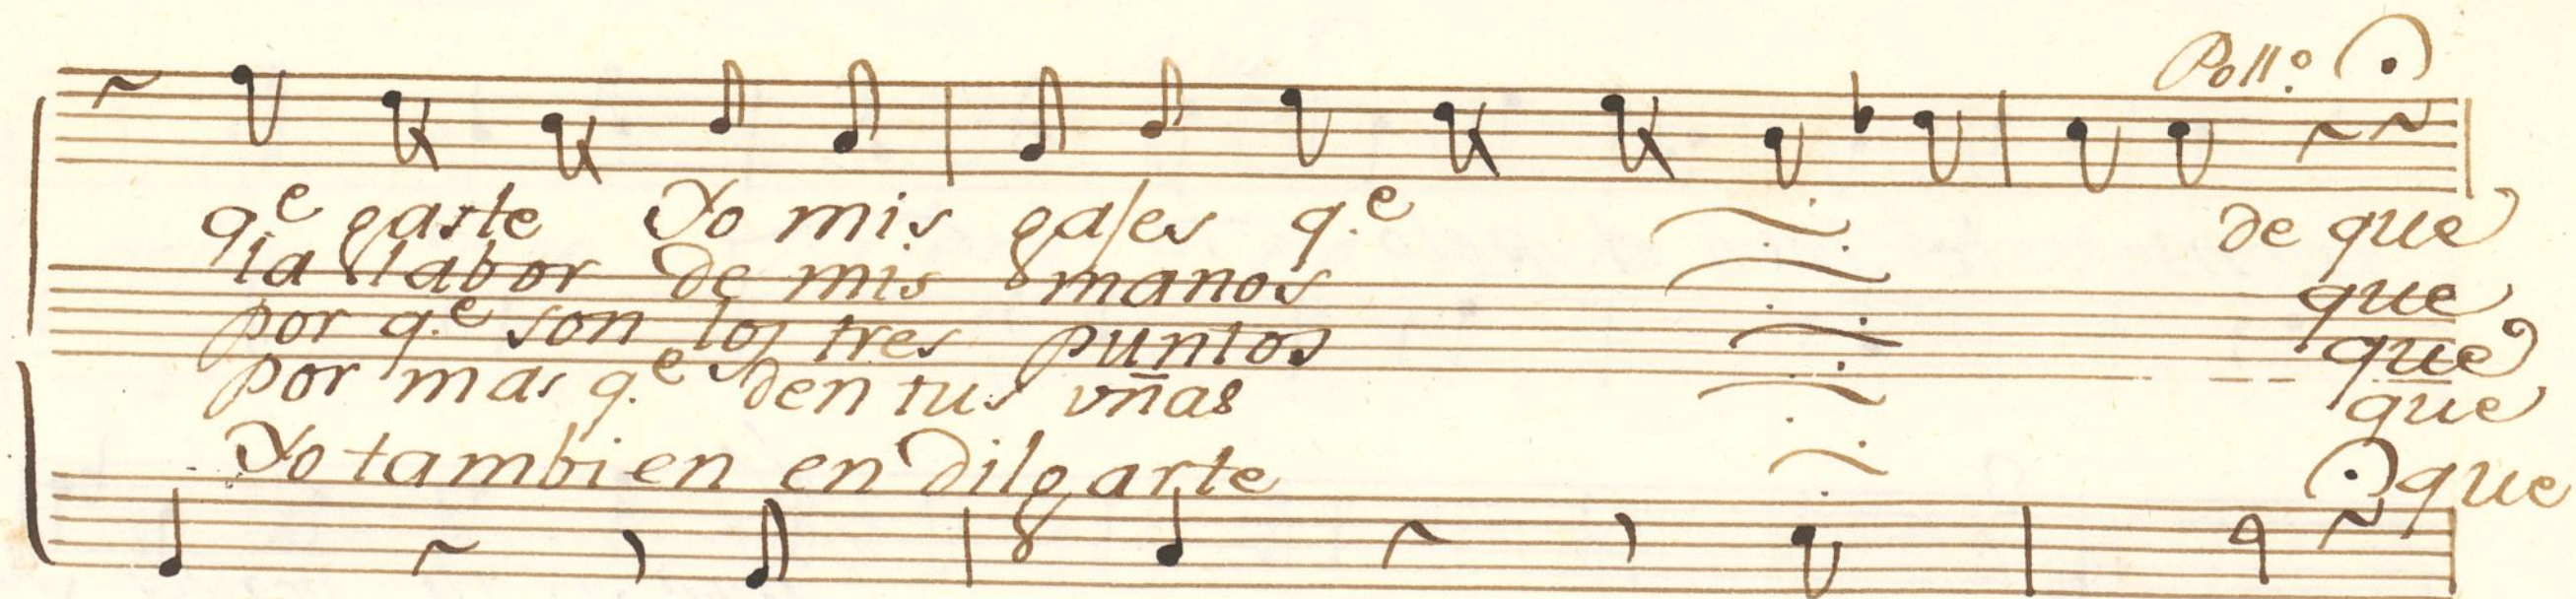 Poll.º
q.e gaste Yo mis gajes q.e de que
la labor de mis manos que
por q.e son los tres puntos que
por mas q.e den tus vñas que
Yo tambien en dilgarte que